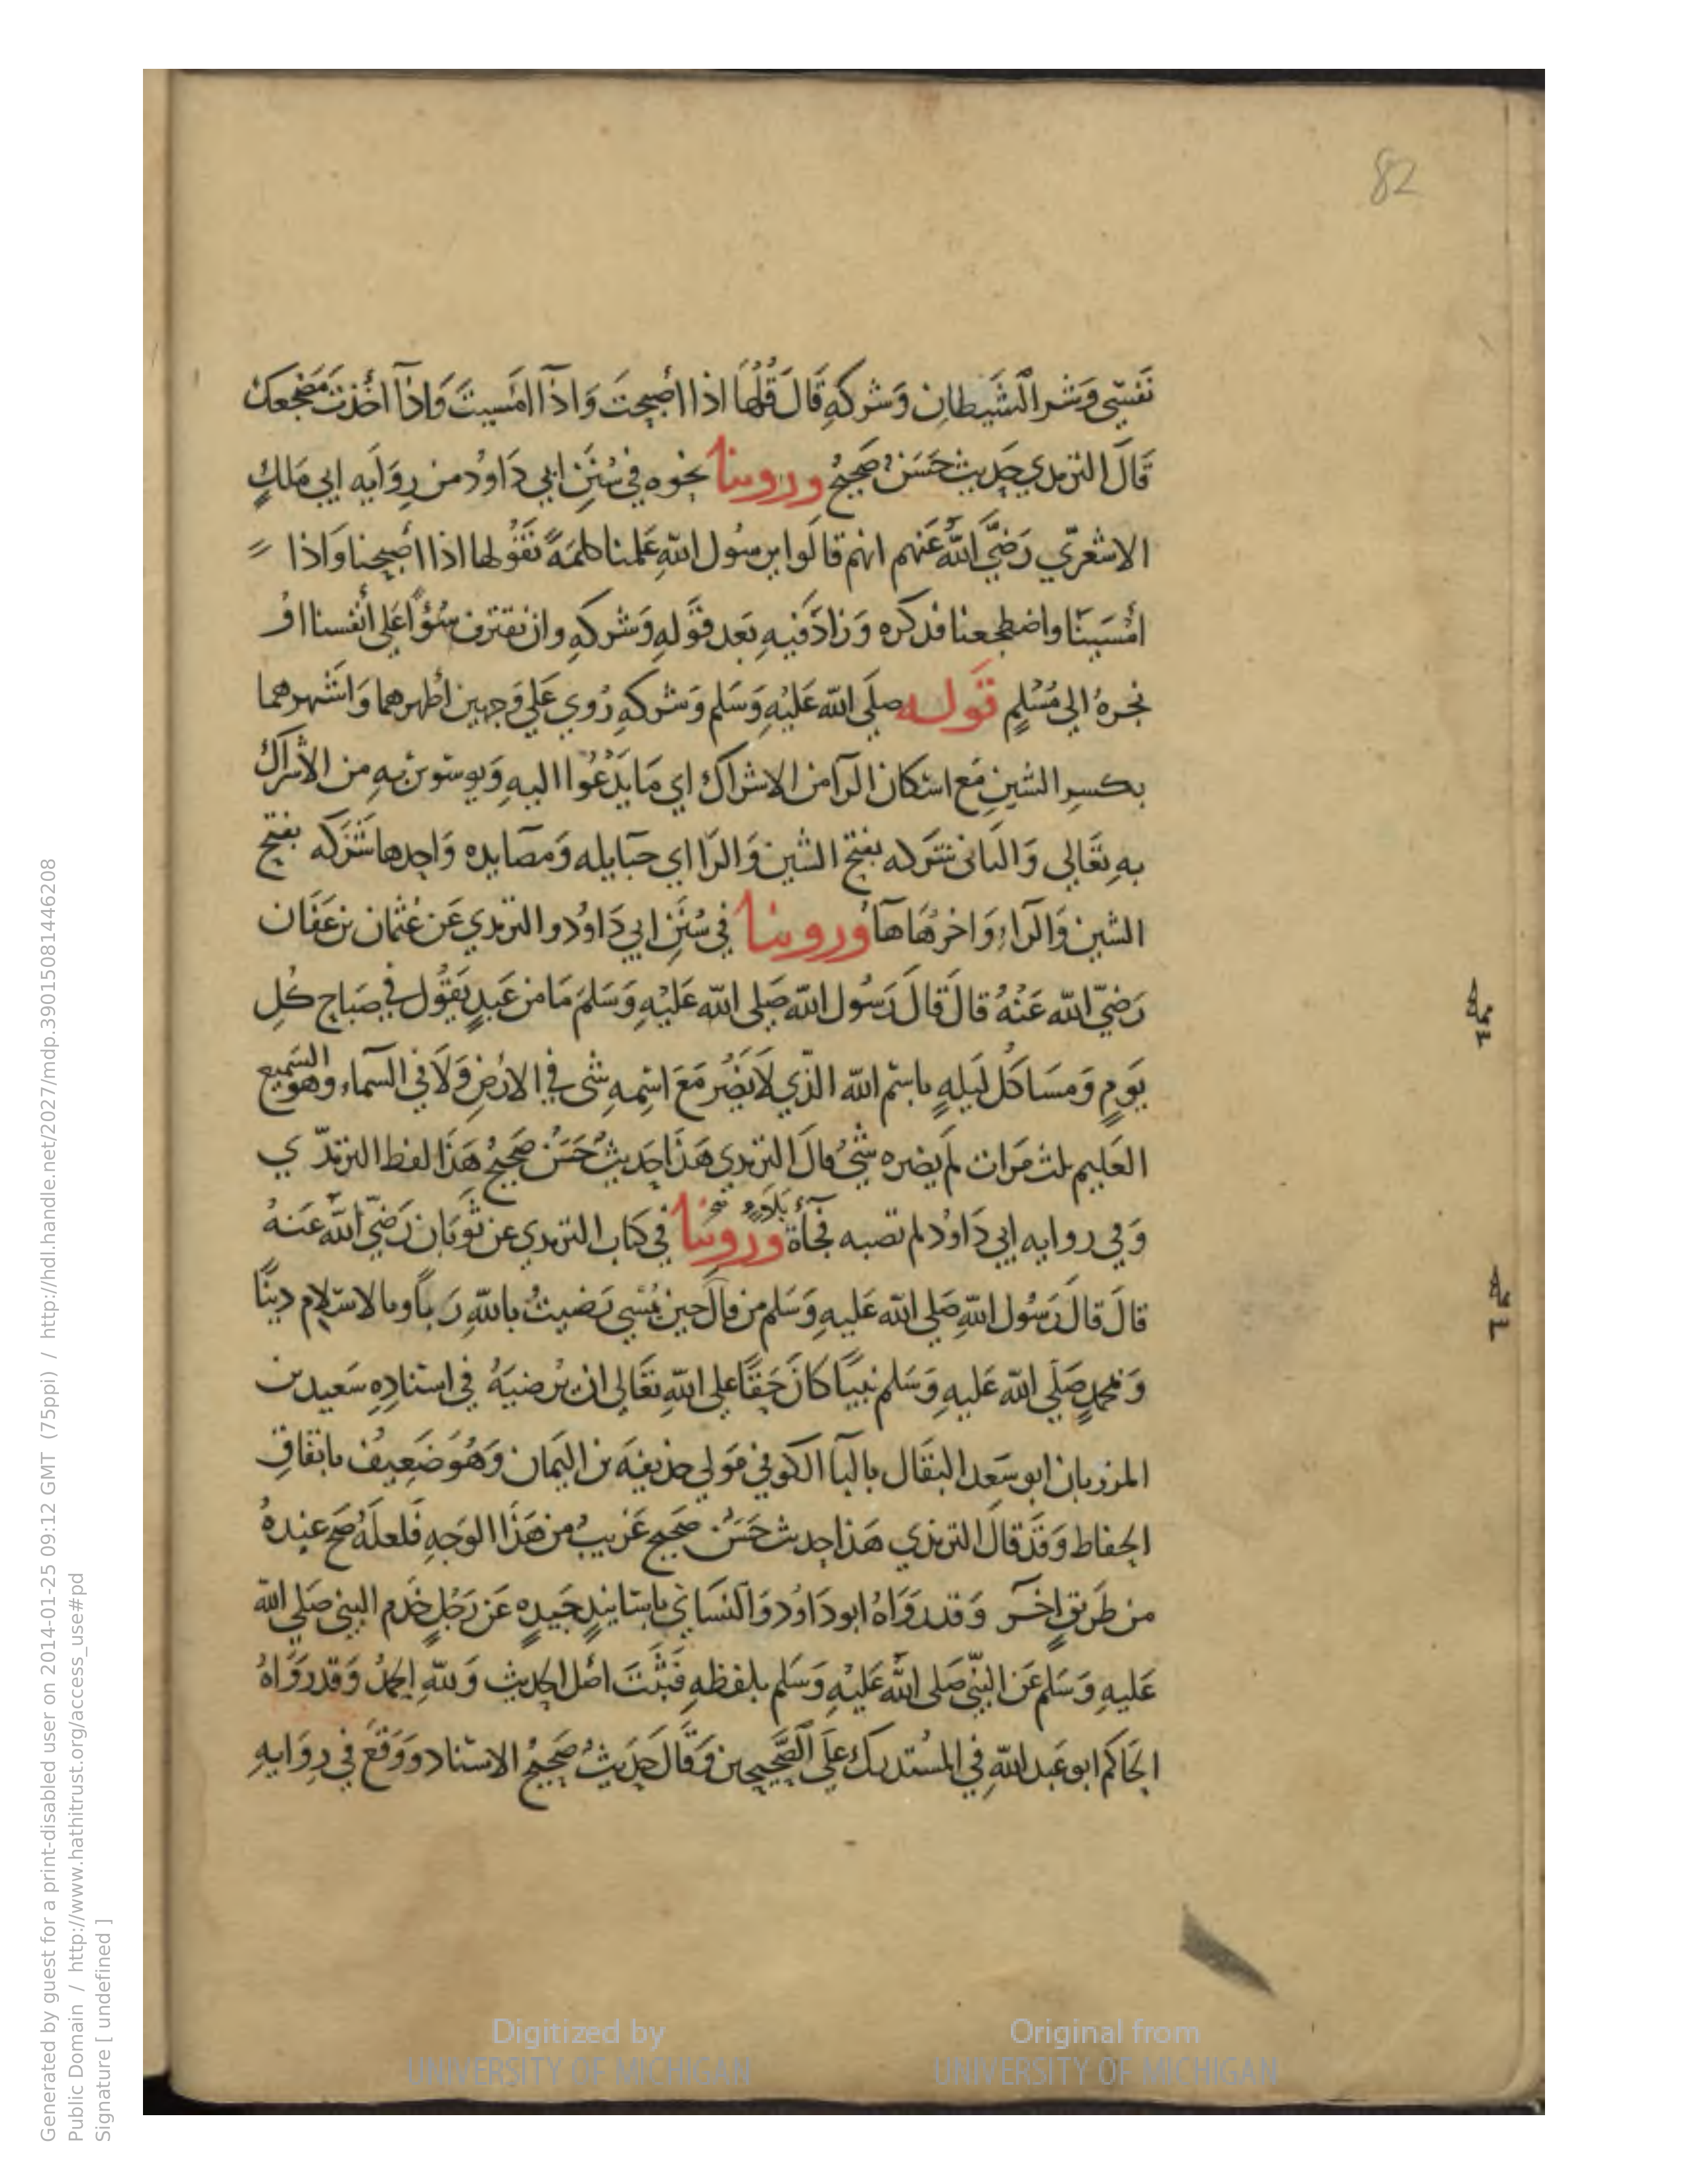 82
نَفسِي وَشر الشيطان وَشركهِ قَالَ قُلهَا اذا أصبحتَ وَاذا امسيتَ وَاذا اخذتَ مَضجعك
قَالَ الترمذي حَديث حَسَنٌ صَحيحٌ وروينا نحوه في سُنَنِ ابي دَاوُد من رِوَايَه ابي مَلكٍ
الاشعري رَضيَ الله عَنهم انهم قالوا يرسُول اللهِ عَلمنا كلمَةً نَقُولها اذا أصبحنا وَاذا
امْسَينَا واضطجعنا فذكره وَزادَ فيهِ بَعد قَولهِ وَشركهِ وان نقترف سُؤاً عَلى أنفسنا اوْ
نجرهُ الى مُسْلمٍ قوله صلَى الله عَليْهِ وَسَلم وَشركهِ رُوي عَلي وَجهين اظهرهما وَاشهرهما
بكسرِ الشينِ مَع اسكان الرآ من الاشراك اي مَا يَدْعُوا اليهِ وَيوسوس بهِ من الاشراك
بهِ تعَالى وَالثانى شركه بفتح الشين وَالرَا اي حبَايله وَمصَايده وَاحِدها شَرَكه بفتح
الشين وَالرَاء وَاخرُهَا هَآ وروينا في سُنَنِ ابي دَاوُد والترمذي عَن عُثمان بن عَفَان
رَضيَ الله عَنْهُ قالَ قالَ رَسُول الله صَلى الله عَليْهِ وَسَلمَ مَا من عَبدٍ يَقُول في صَباح كُلِ
يَومٍ وَمسَا كل لَيلهٍ باسْم الله الذي لَا يَضُر مَعَ اسْمهِ شى في الارْضِ وَلَا في السمآء وهو السَميع
العَليم ثلث مَرات لم يضره شيُ قالَ الترمذي هَذا حَديثٌ حَسَنٌ صَحيحٌ هَذا لفظ الترمذي
وَفي روايه ابي دَاوُد لم تصبه فجأة بَلآءٍ وروينا في كتاب الترمذي عن ثَوبَان رَضيَ الله عَنهُ
قالَ قالَ رَسُول اللهِ صَلى الله عَليهِ وَسَلم من قالَ حين يُمسي رَضيتُ بالله رَباً وبالاسْلام دينًا
وَبمحمدٍ صَلَى الله عَليهِ وَسَلم نبيًا كانَ حَقًا على اللهِ تعَالى ان يُرضيَهُ في اسنادِهِ سَعيد بن
المرزبان ابو سَعد البقَال بالبآ الكوفي مَولى حذيفَة بن اليمان وَهُوَ ضَعيفٌ باتفاقِ
الحفاظ وَقَد قالَ الترمذي هَذا حديث حَسَنٌ صَحيح غَريبٌ من هَذا الوَجهِ فَلعلهُ صَح عندهُ
من طَريقٍ اخر وَقد رَوَاهُ ابو دَاوُد وَالنسَاي باسَانيدٍ جَيدهٍ عَن رَجُلٍ خَدَم النبي صَلى الله
عَليهِ وَسَلم عَن النبي صَلى الله عَليْهِ وَسَلم بلفظهِ فَثبَتَ اصل الحديث وَللهِ الحمدُ وَقد رَوَاهُ
الحَاكم ابو عَبد اللهِ في المسْتدرك عَلَى الصَحيحين وَقَالَ حَديثٌ صَحيحُ الاسناد وَوَقعَ في رِوَايهِ
Digitized by
UNIVERSITY OF MICHIGAN
Original from
UNIVERSITY OF MICHIGAN
Generated by guest for a print-disabled user on 2014-01-25 09:12 GMT (75ppi) / http://hdl.handle.net/2027/mdp.39015081446208
Public Domain / http://www.hathitrust.org/access_use#pd
Signature [ undefined ]